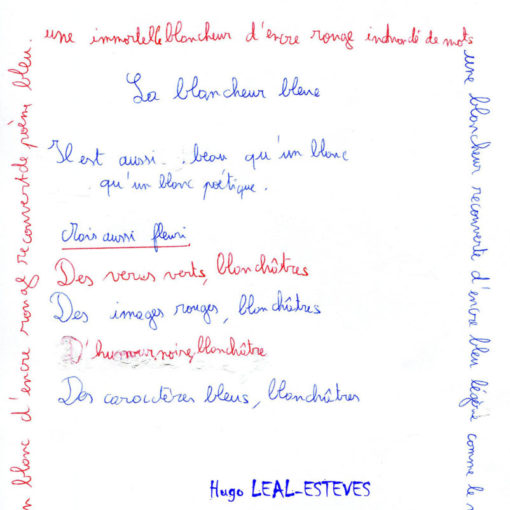 une immortelle blancheur d'encre rouge inondé de mots
La blancheur bleue
Il est aussi.. beau qu'un blanc
qu'un blanc poétique.
Mais aussi fleuri
Des verus verts, blanchâtres
Des images rouges, blanchâtres
D'humour noire, blanchâtre
Des caractères bleus, blanchâtres
Hugo LEAL-ESTEVES
une blancheur recouverte d'encre bleu légère comme le
blanc d'encre rouge recouvert de poème bleu.